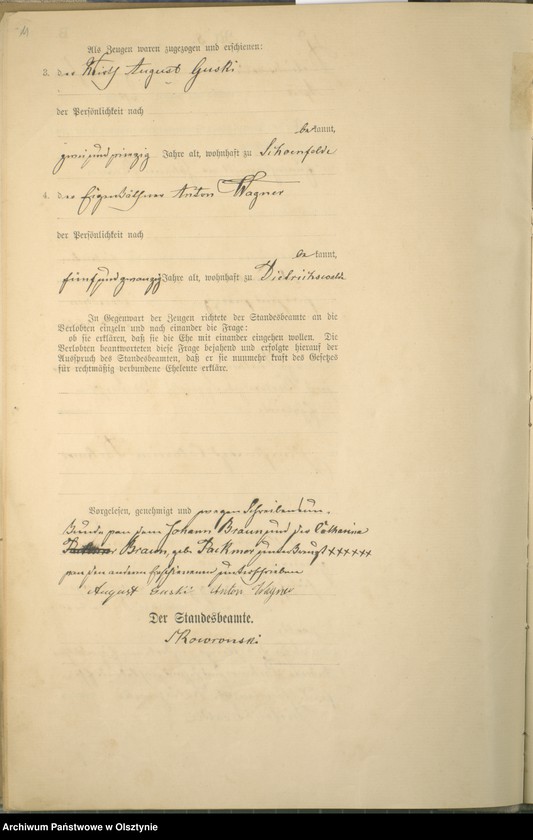 Als Zeugen waren zugezogen und erschienen:
3. der Wirth August Guski
der Persönlichkeit nach
bekannt,
zweiundvierzig Jahre alt, wohnhaft zu Schoenfelde
4. der Eigenkäthner Anton Wagner
der Persönlichkeit nach
bekannt,
fünfundzwanzig Jahre alt, wohnhaft zu Dietrichswalde
In Gegenwart der Zeugen richtete der Standesbeamte an die
Verlobten einzeln und nach einander die Frage:
ob sie erklären, daß sie die Ehe mit einander eingehen wollen. Die
Verlobten beantworteten diese Frage bejahend und erfolgte hierauf der
Ausspruch des Standesbeamten, daß er sie nunmehr kraft des Gesetzes
für rechtmäßig verbundene Eheleute erkläre.
Vorgelesen, genehmigt und wegen Schreibensun-
kunde von dem Johann Braun und der Catharina
Braun, geb. Packmor xxxxxx
von den anderen Erschienenen unterschrieben
August Guski Anton Wagner
Der Standesbeamte.
Skowronski
Archiwum Państwowe w Olsztynie